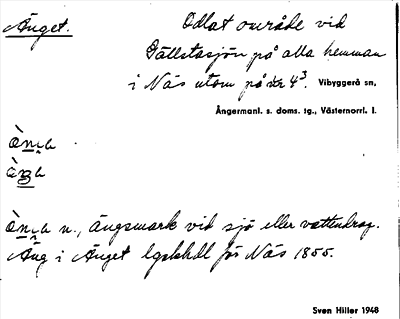 Änget.
Odlat område vid
Gällstasjön på alla hemman
i Näs utom på 4³. Vibyggerå sn,
Ångermanl. s. doms. tg., Västernorrl. l.
n., ängsmark vid sjö eller vattendrag.
Äng i Änget lgskhdl för Näs 1855.
Sven Hiller 1948